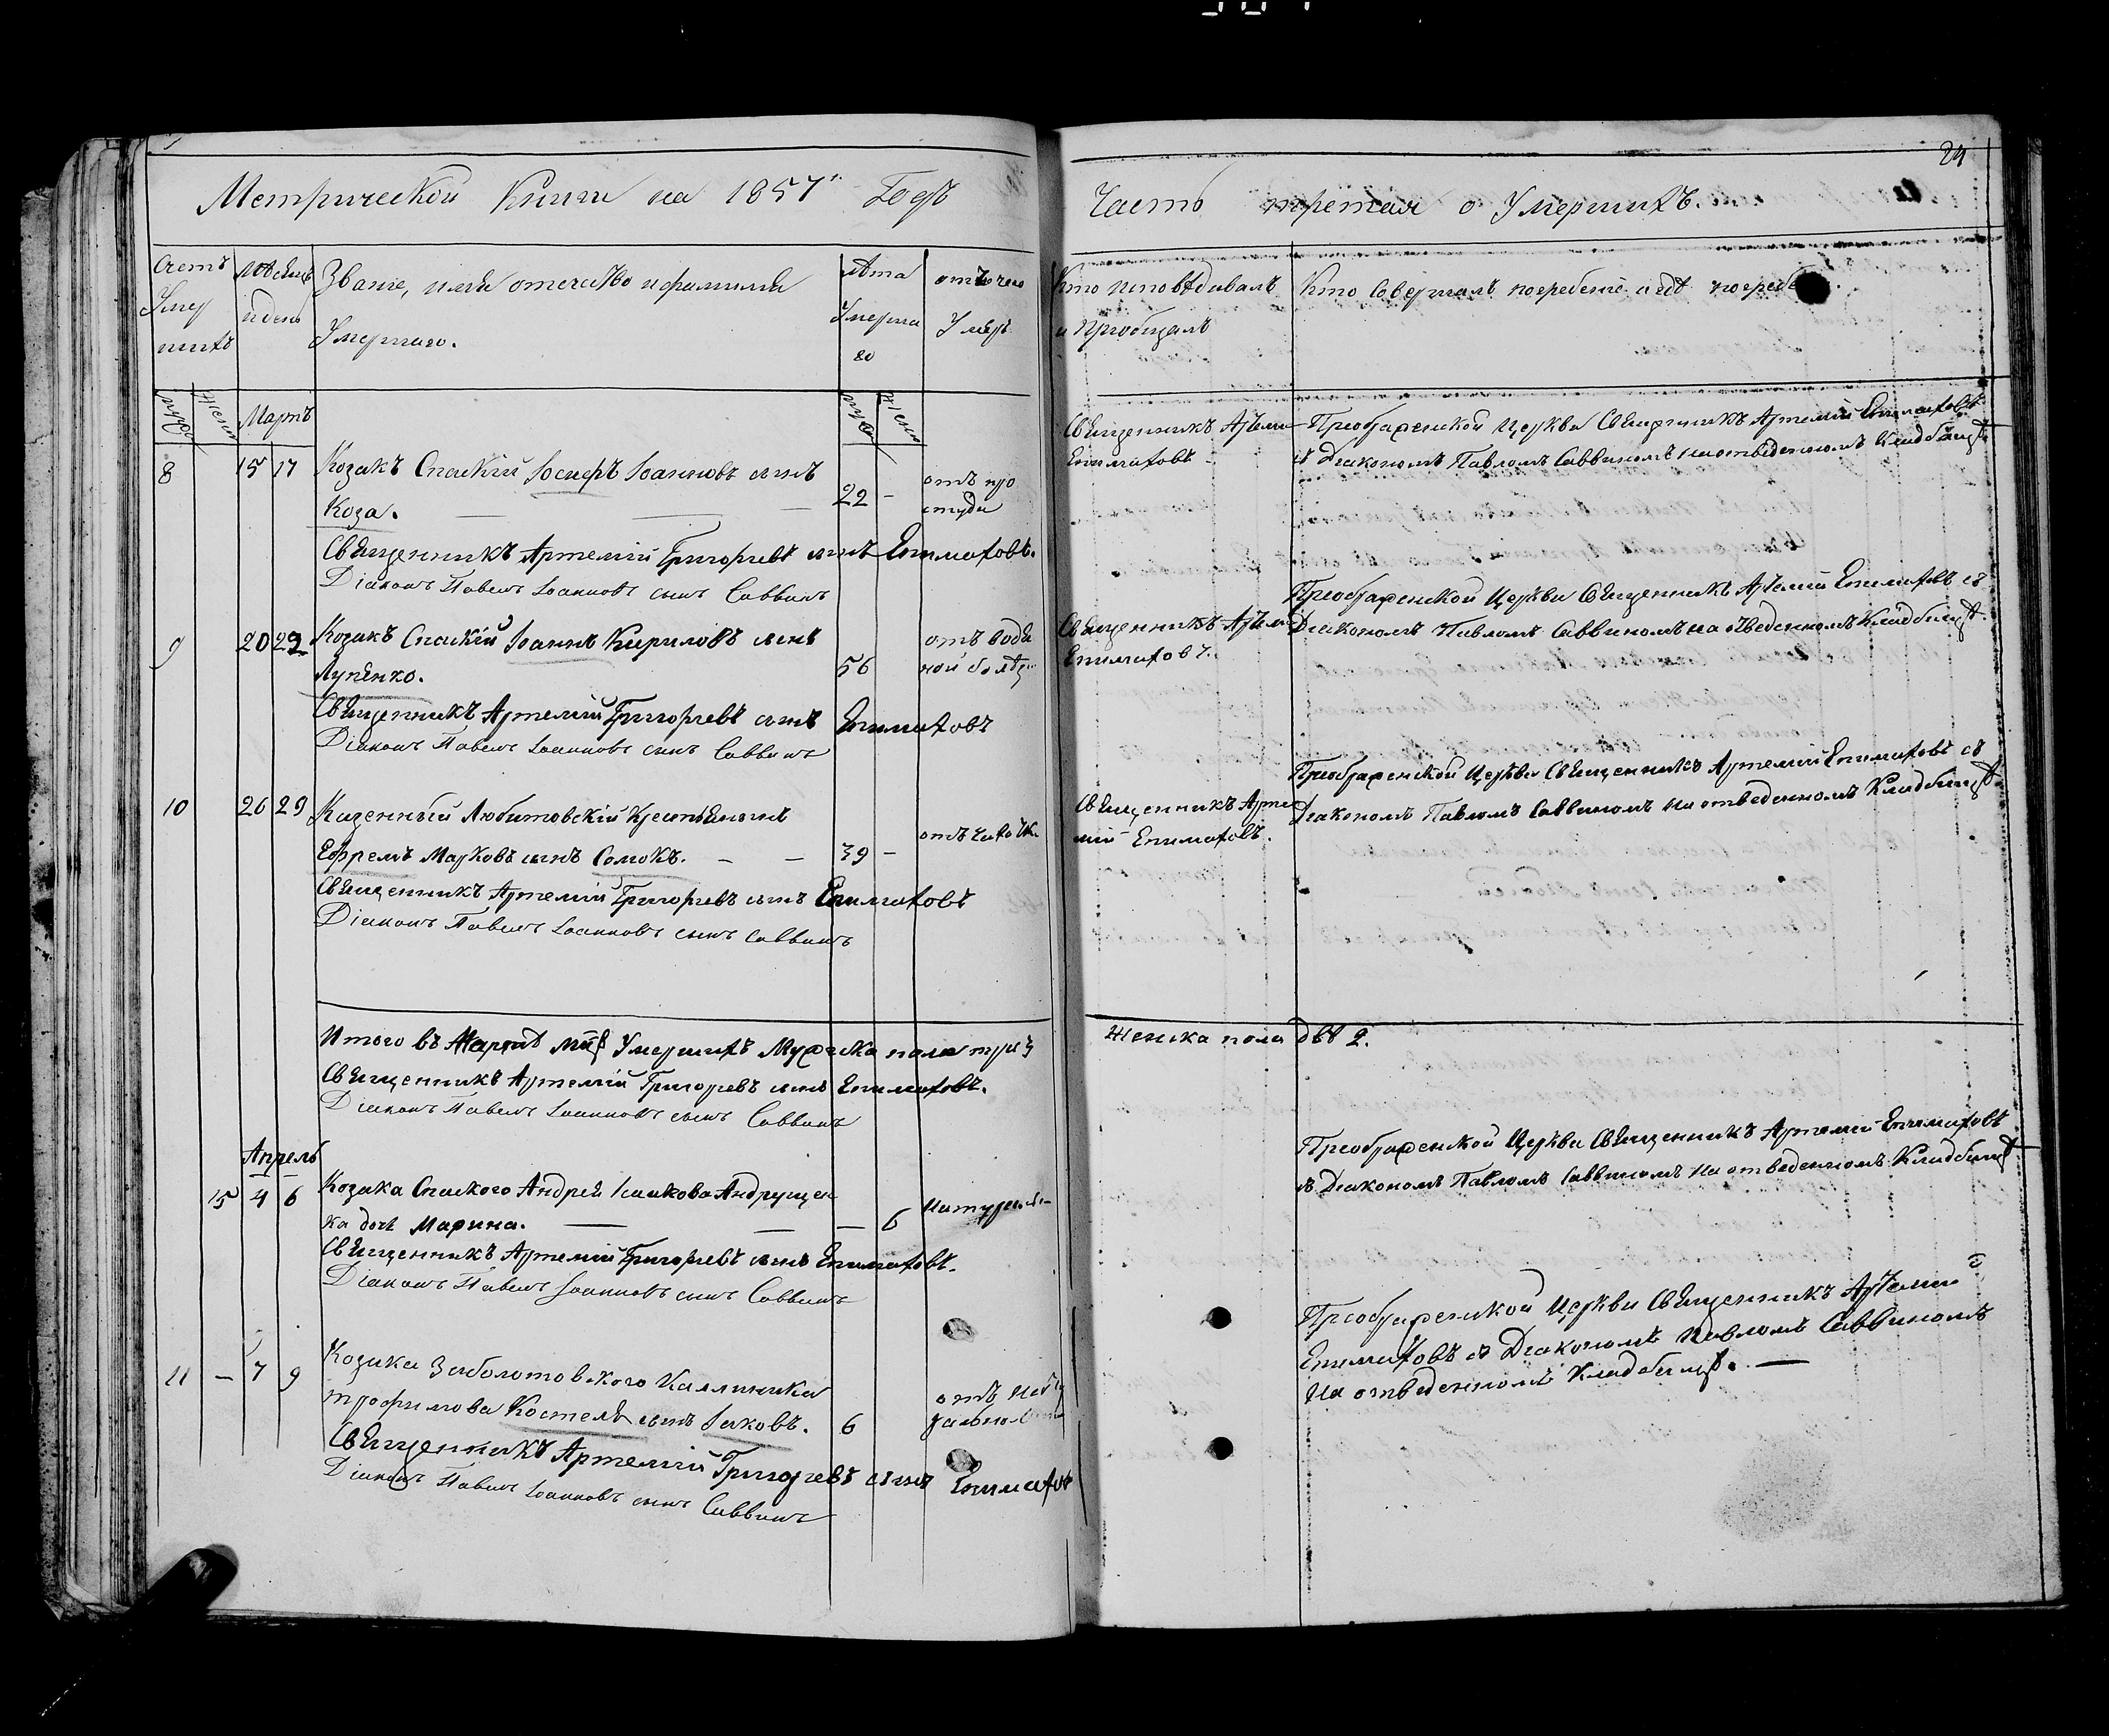 Метрической Книги на 1857 Годъ
Счетъ Умер шихъ
Мѣсяцъ и день
Званіе, имя отечество и фамилия
Умершаго.
лѣта Умерша го
отъ чего Умеръ
муж женс
Мартъ
муж женс
8 15 17 Козакъ Спаскій Іосифъ Іоанновъ сынъ
Коза. — — 22 - отъ про студи
Священникъ Артемій Григорьевъ сынъ Епиматовъ.
Діаконъ Павелъ Іоанновъ сынъ Саввинъ
9 20 22 Козакъ Спаскій Іоаннъ Кириловъ сынъ
Лупенко. 56 отъ водя ной болѣз
Священникъ Артемій Григорьевъ сынъ Епиматовъ
Діаконъ Павелъ Іоанновъ сынъ Саввинъ
10 26 29 Казенный Любитовскій Крестьянинъ
Ефремъ Марковъ сынъ Сомокъ. — — 39 -
Священникъ Артемій Григорьевъ сынъ Епиматовъ
Діаконъ Павелъ Іоанновъ сынъ Саввинъ
Итого въ Мартѣ мцѣ Умершихъ Мужска пола три 3
Священникъ Артемій Григорьевъ сынъ Епиматовъ.
Діаконъ Павелъ Іоанновъ сынъ Саввинъ
Апрель
15 4 6 Козака Спаского Андрея Исакова Андрущен
ка дочь Марина. — — — 6
Священникъ Артемій Григорьевъ сынъ Епиматовъ.
Діаконъ Павелъ Іоанновъ сынъ Саввинъ
11 — 7 9 Козака Заболотовского Каллиника
Трофимова Костеля сынъ Іаковъ. 6 отъ
Священникъ Артемій Григорьевъ сынъ Епиматов
Діаконъ Павелъ Іоанновъ сынъ Саввинъ
24
Часть третая о Умершихъ.
Кто исповѣдивалъ
и Приобщалъ
Кто Совершалъ погребеніе и гдѣ погребе
Священникъ Артеми
Епиматовъ
Преображенской Церкви Священникъ Артемій Епиматовъ
съ Діакономъ Павломъ Саввиномъ на отведенномъ Кладбищѣ
Священникъ Артеми
Епиматовъ.
Преображенской Церкви Священникъ Артемій Епиматовъ съ
Діакономъ Павломъ Саввиномъ на отведенномъ Кладбищѣ.
Священникъ Арте
мій Епиматовъ.
Преображенской Церкви Священникъ Артемій Епиматовъ съ
Діакономъ Павломъ Саввиномъ на отведенномъ Кладбищѣ.
Женска пола двѣ 2.
Преображенской Церкви Священникъ Артемій Епиматовъ
съ Діакономъ Павломъ Саввиномъ на отведенномъ Кладбищѣ
Преображенской Церкви Священникъ Артемий
Епиматовъ съ Діакономъ Павломъ Саввиномъ
На отведенномъ Кладбищѣ. —